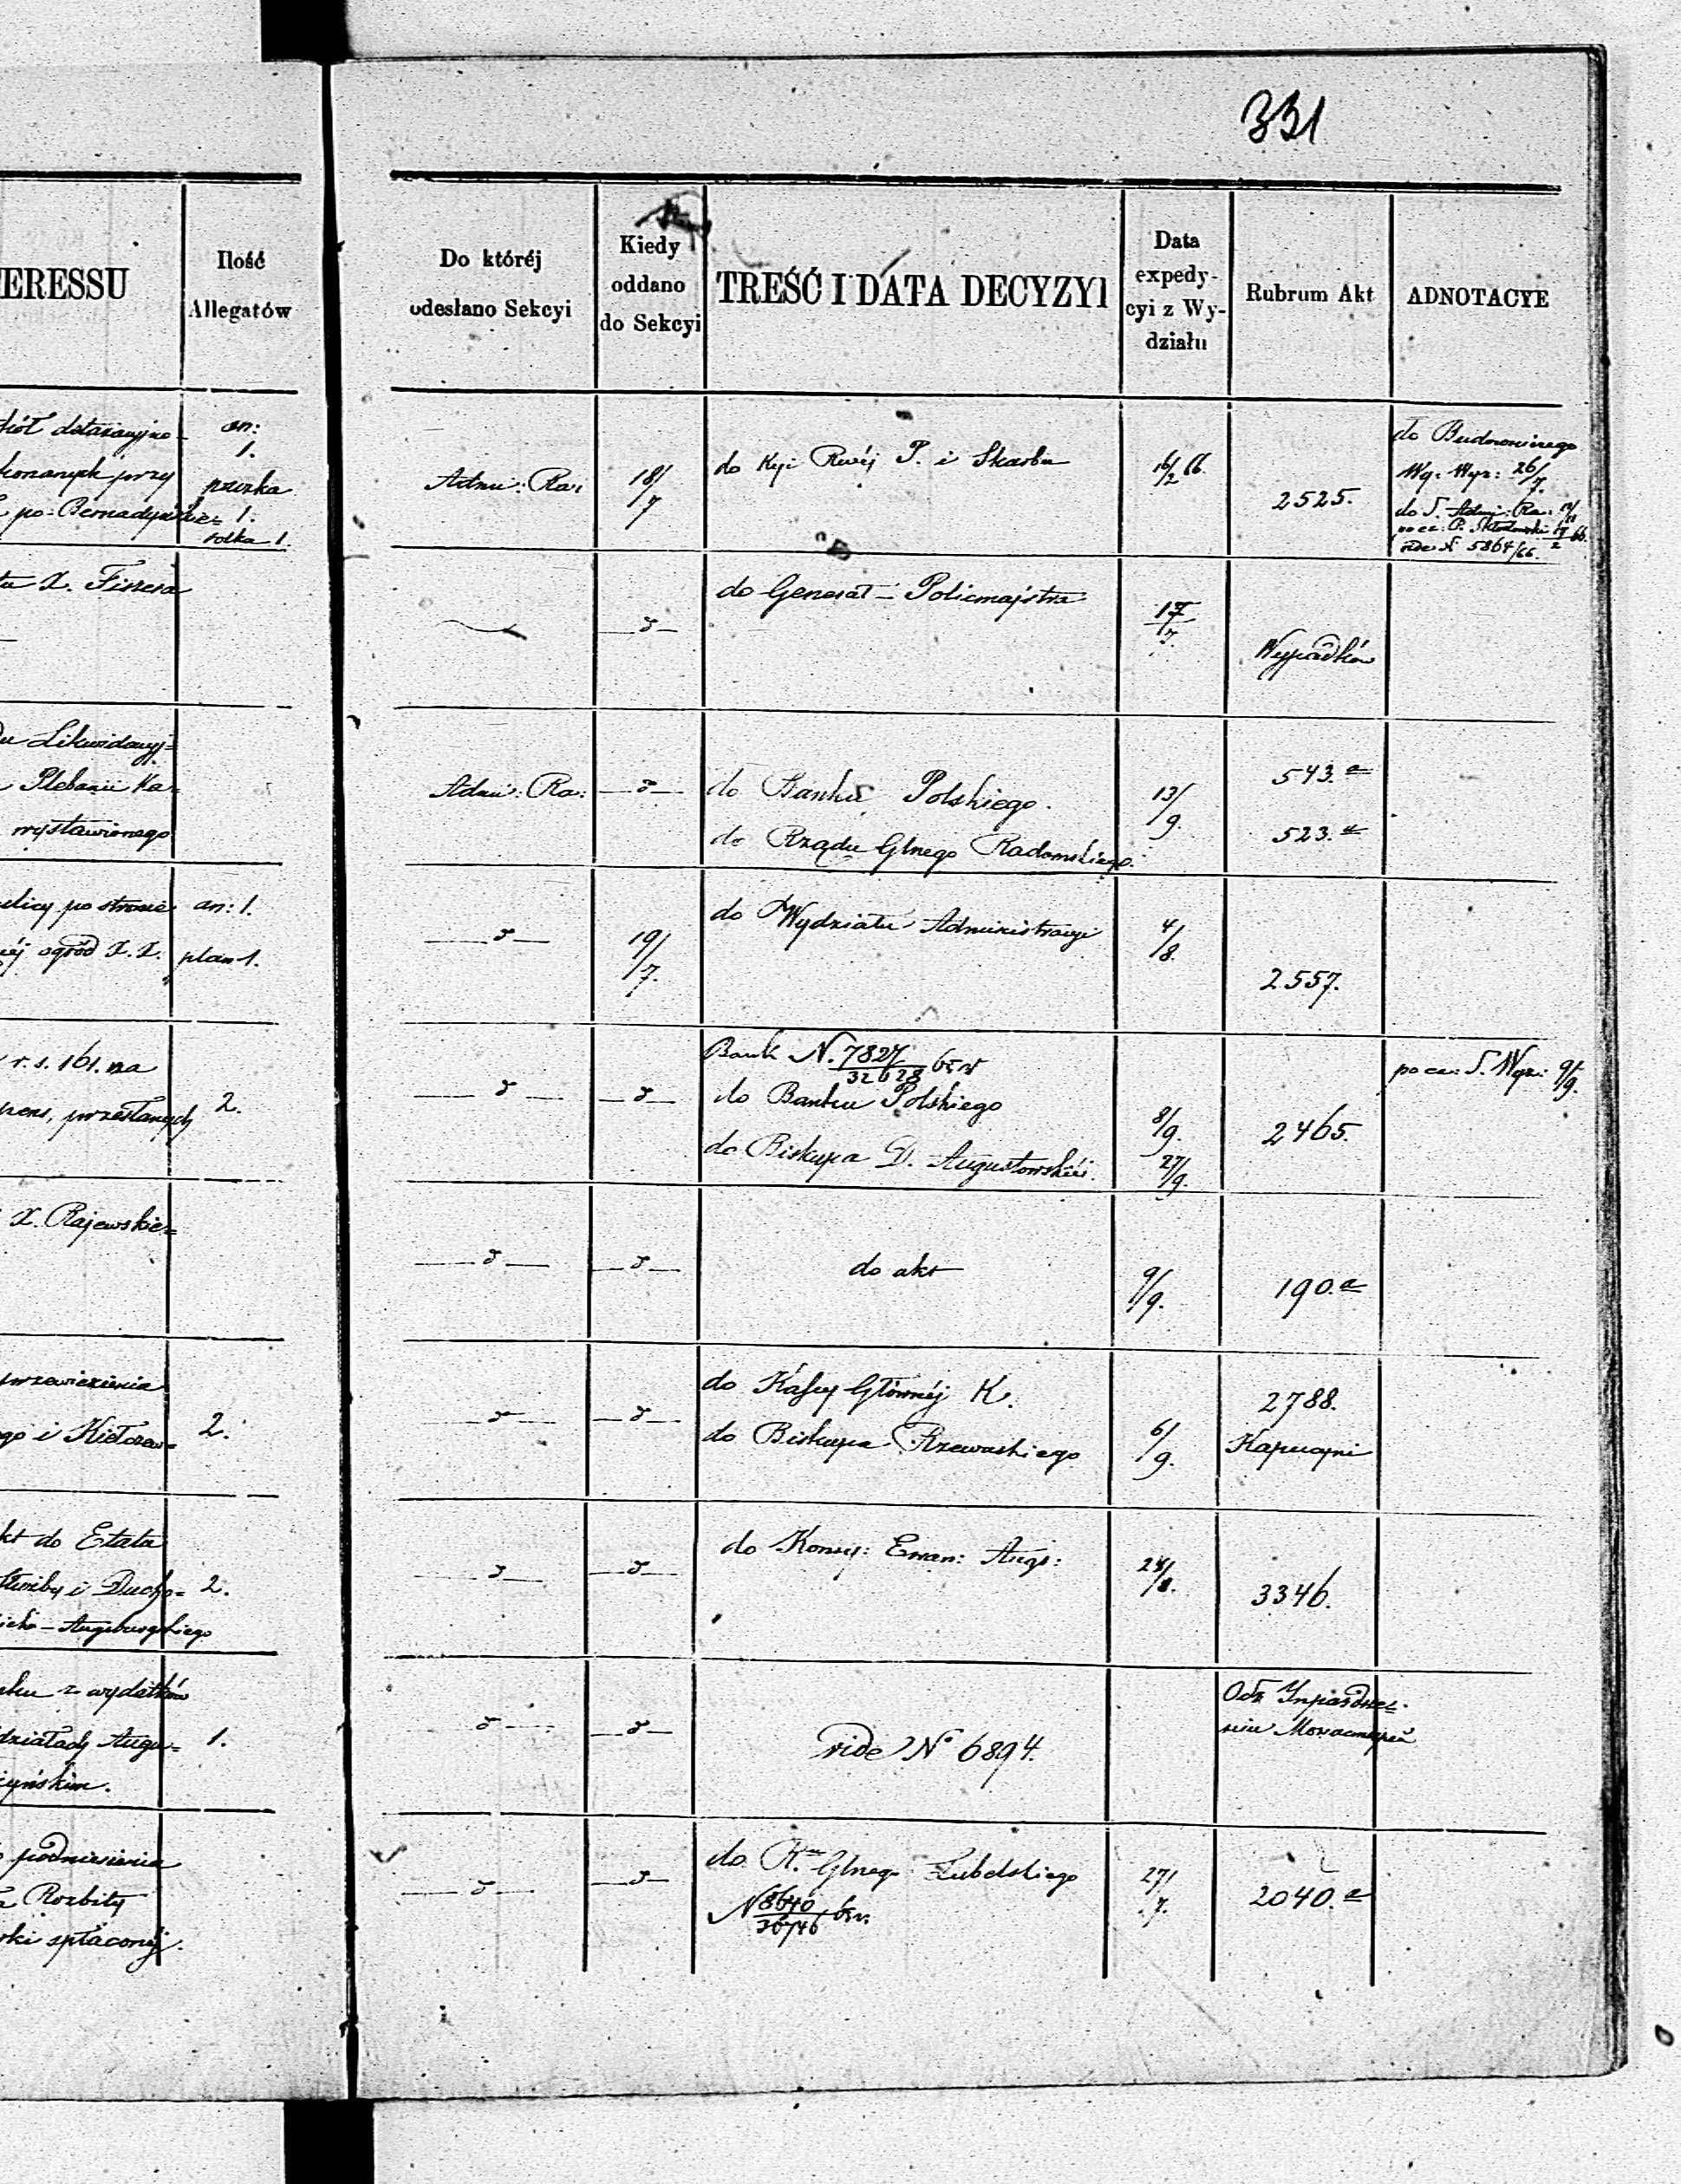 331
ERESSU
Ilość
Allegatów
Do któréj
odesłano Sekcyi
Kiedy
oddano
do Sekcyi
TREŚĆ I DATA DECYZYI
Data
expedy-
cyi z Wy-
działu
Rubrum Akt
ADNOTACYE
an:
1.
1.
rolka 1.
Adm: Ra:
18/7
do Kyi Rwéj P. i Skarbu
16/2 66.
2525.
do Budowniczego
Wy: Wyz: 26/7.
do S. Adm: Ra:
vide N 5864/66.
tu X. Fiszera
—d—
do Generał-Policmajstra
17/7.
Wypadków
du Likwidacyj=
Plebanii Ka=
wystawionego
Adm: Ra:
—d—
do Banku Polskiego.
do Rządu Glnego Radomskiego.
13/9.
543.a
523.a
ulicy po stronie
ogród X.X.
an: 1.
plan 1.
—d—
19/7.
do Wydziału Administracyi
4/8.
2557.
r. s. 161. na
przesłanych
2.
—d—
—d—
Bank N. 7827/32628
do Banku Polskiego
do Biskupa D. Augustowskiéj.
8/9.
27/9.
2465.
po cz: S. Wyz: 9/9.
X. Rajewskie=
—d—
—d—
do akt
9/9.
190.a
przewiezienia
go i Kietczew=
2.
—d—
—d—
do Kassy Głównéj K.
do Biskupa Rzewuskiego
6/9.
2788.
Kapucyni
kt do Etatu
Służby i Ducho=
icko-Augsburgskiego
2.
—d—
—d—
do Konsy: Ewan: Augs:
24/8.
3346.
z wydatków
działach Augu=
czyńskim.
1.
—d—
—d—
vide N° 6894.
podniesienia
Rozbity
rki spłaconéj.
—d—
—d—
do Rdu Glnego Lubelskiego
N 8640/36746
27/7.
2040.a